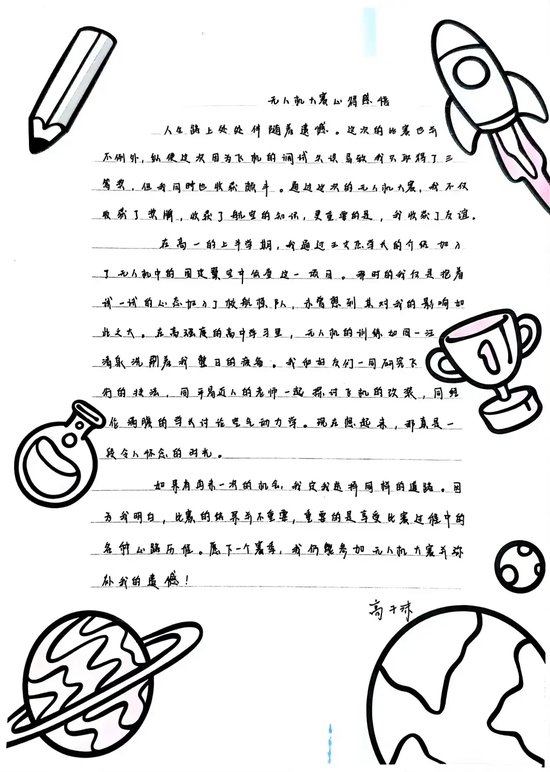 无人机大赛心得感悟
人生路上处处伴随着遗憾。这次的比赛也并
不例外，纵使这次因为飞机的调试失误导致我只取得了二
等奖，但我同时也收获颇丰。通过这次的无人机大赛，我不仅
收获了奖牌，收获了航空的知识，更重要的是，我收获了友谊。
在高一的上半学期，我通过王文杰学长的介绍加入
了无人机中的固定翼空中侦查这一项目。那时的我仅是抱着
试一试的心态加入了放航模队，未曾想到其对我的影响如
此之大。在高强度的高中学习里，无人机的训练如同一汪
清泉洗刷着我整日的疲备。我和好友们一同研究飞
行的技法，同平易近人的老师一起探讨飞机的改装，同经
验满腹的学长讨论空气动力学。现在想起来，那真是一
段令人怀念的时光。
如果有再来一次的机会，我定会选择同样的道路。因
为我明白，比赛的结果并不重要，重要的是享受比赛过程中的
各种心路历程。愿下一个赛季，我仍能参加无人机大赛并弥
补我的遗憾！
高